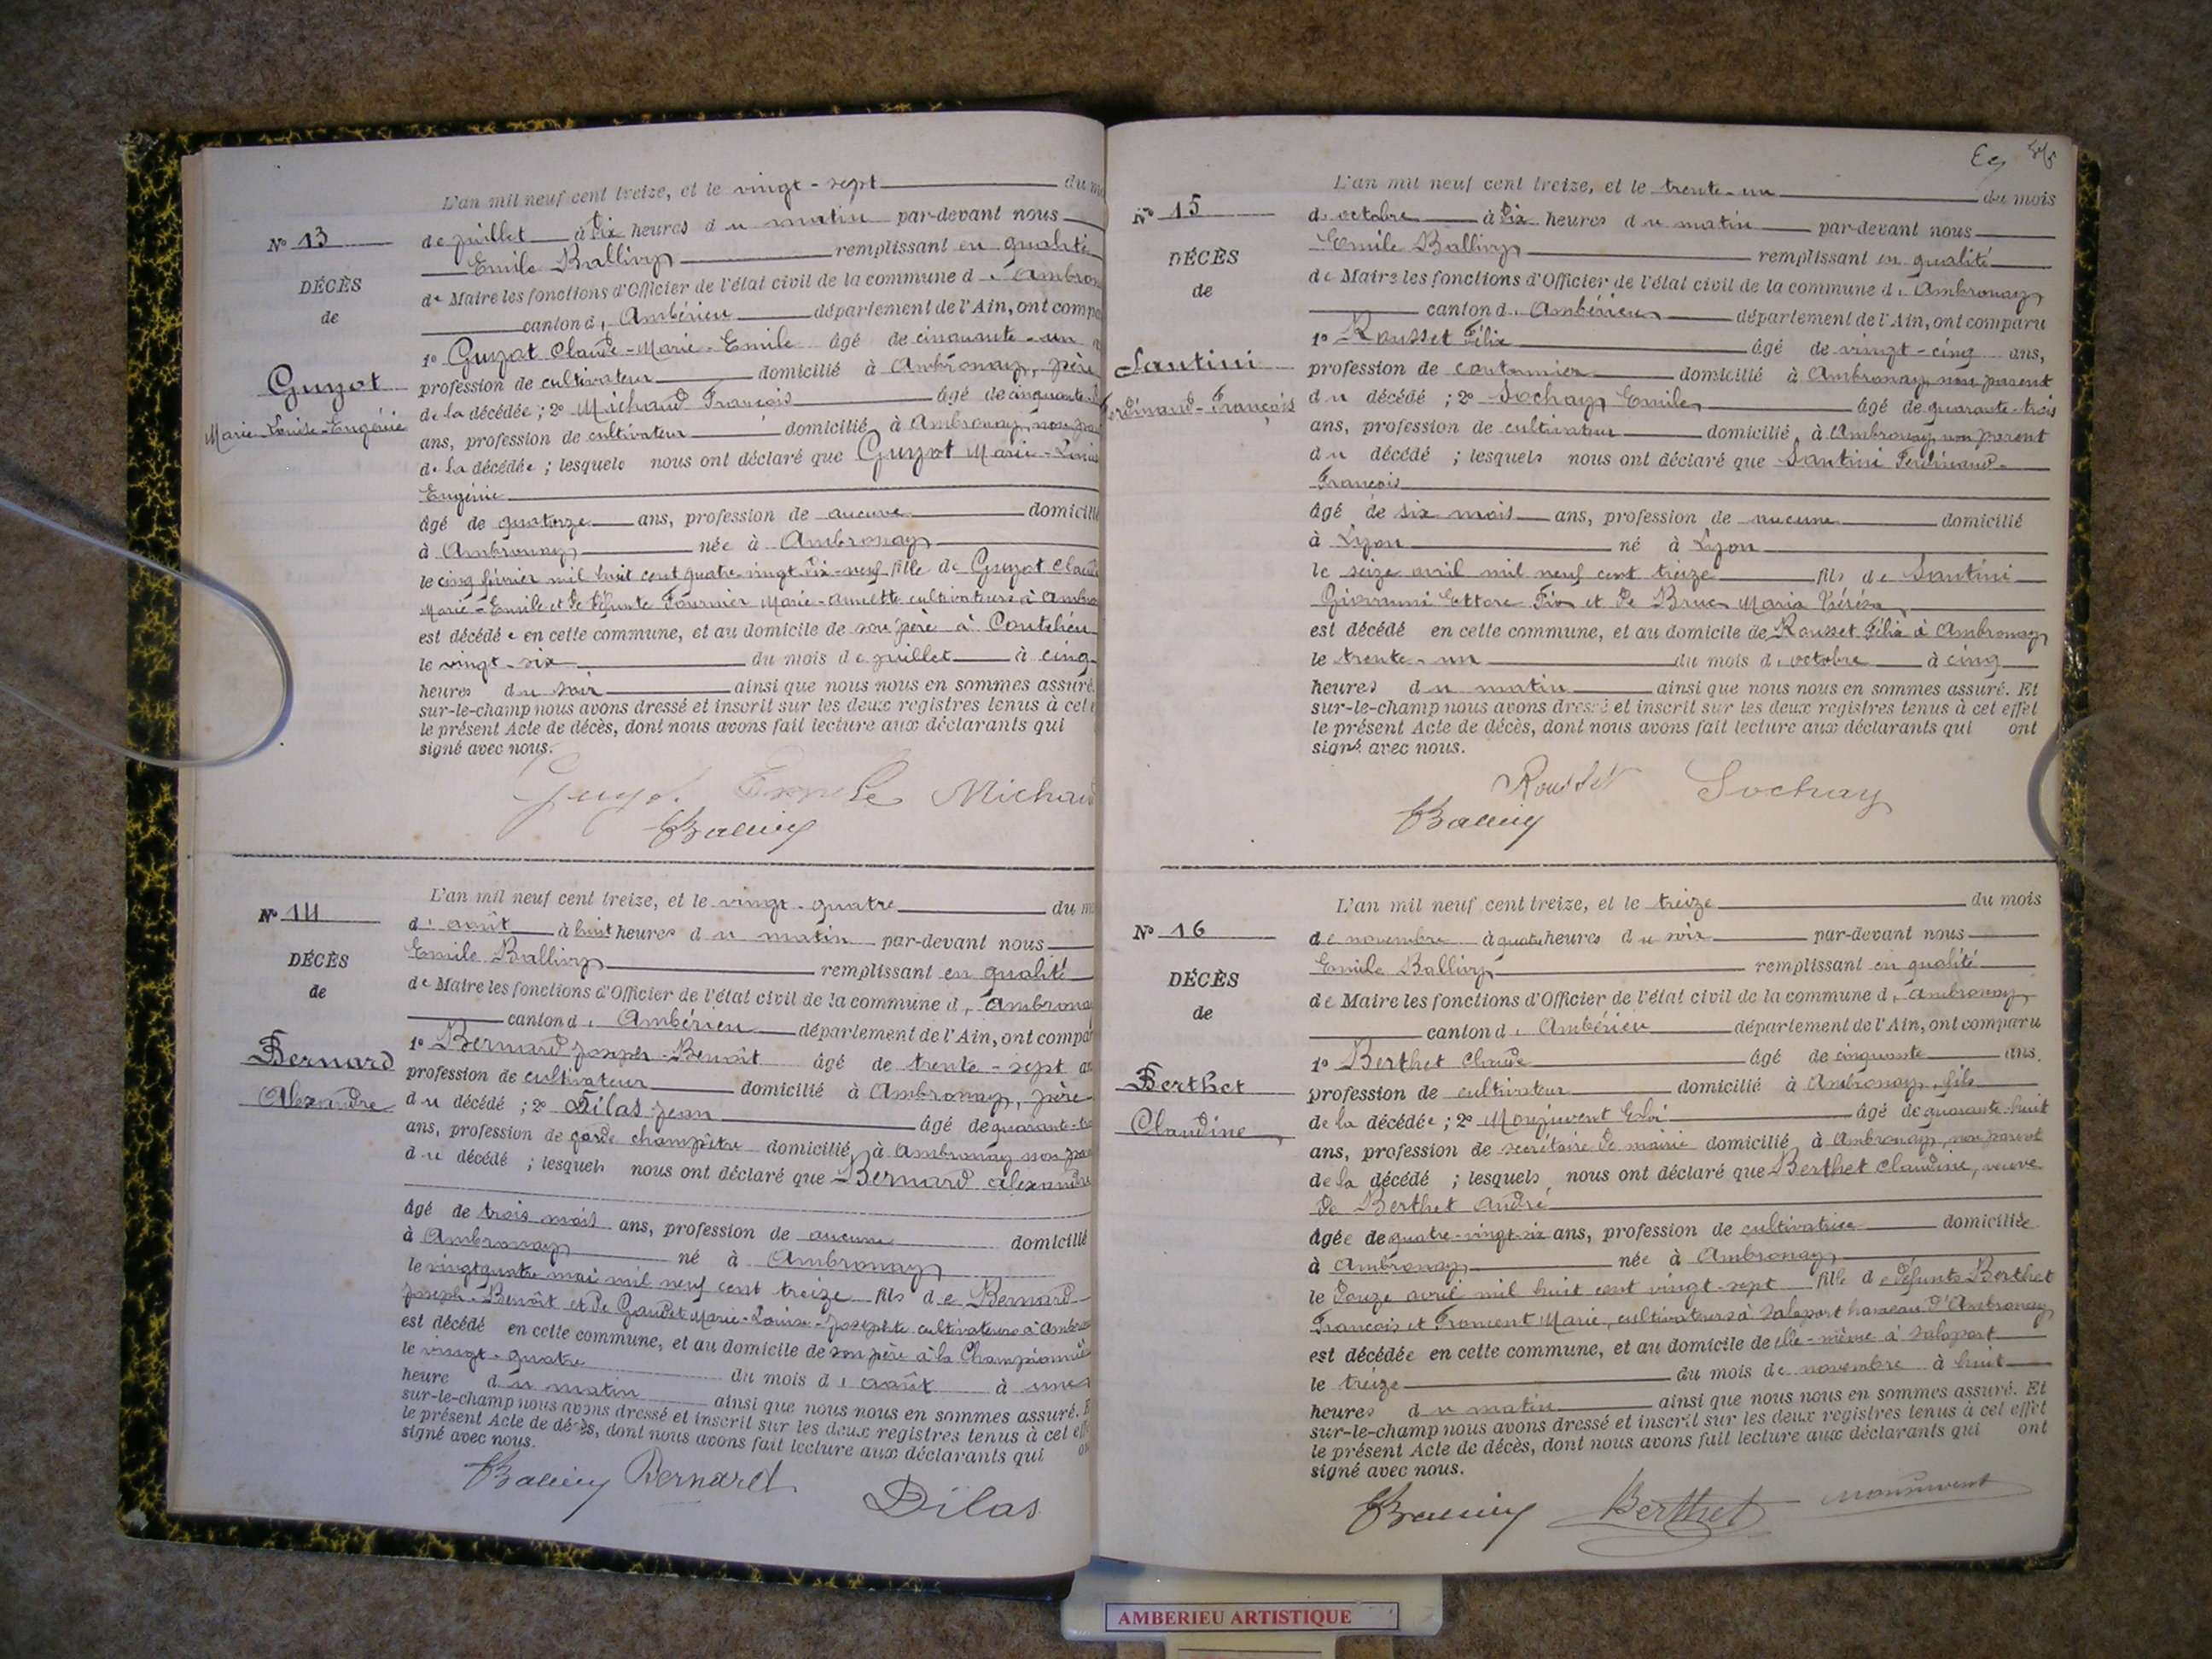 L'an mil neuf cent treize, et le vingt-sept du
N° 13
de juillet à dix heures du matin par-devant nous
Emile Ballivy remplissant en qualité
DÉCÈS
de Maire les fonctions d'Officier de l'état civil de la commune d'Ambron
de
canton d'Ambérieu département de l'Ain, ont comp
1° Guyot Claude-Marie-Emile âgé de cinquante-un
Guyot
profession de cultivateur domicilié à Ambronay, père
Marie-Louise-Eugénie
de la décédée ; 2° Michaud François âgé de cinquante
ans, profession de cultivateur domicilié à Ambronay, non
de la décédée ; lesquels nous ont déclaré que Guyot Marie-Louise
Eugénie
âgé de quatorze ans, profession de aucune domicilié
à Ambronay née à Ambronay
le cinq février mil huit cent quatre-vingt-dix-neuf fille de Guyot Claude
Marie-Emile et de défunte Fournier Marie- cultivateurs à Ambro
est décédée en cette commune, et au domicile de son père à
le vingt-six du mois de juillet à cinq
heures du soir ainsi que nous nous en sommes assuré.
sur-le-champ nous avons dressé et inscrit sur les deux registres tenus à cet
le présent Acte de décès, dont nous avons fait lecture aux déclarants qui
signé avec nous.
Guyot Emile Michaud
EBallivy
L'an mil neuf cent treize, et le vingt-quatre du
N° 14
d'août à huit heures du matin par-devant nous
Emile Ballivy remplissant en qualité
DÉCÈS
de Maire les fonctions d'Officier de l'état civil de la commune d'Ambronay
de
canton d'Ambérieu département de l'Ain, ont compar
1° Bernard Joseph-Benoît âgé de trente-sept an
Bernard
profession de cultivateur domicilié à Ambronay, père
Alexandre
du décédé ; 2° Dilas Jean âgé de quarante-
ans, profession de garde champêtre domicilié à Ambronay non
du décédé ; lesquels nous ont déclaré que Bernard Alexandre
âgé de trois mois ans, profession de aucune domicilié
à Ambronay né à Ambronay
le vingt quatre mai mil neuf cent treize fils de Bernard
Joseph-Benoît et de Gaudet Marie-Louise-Josephte cultivateurs à Ambro
est décédé en cette commune, et au domicile de son père à la
le vingt-quatre du mois d'août à une
heure du matin ainsi que nous nous en sommes assuré.
sur-le-champ nous avons dressé et inscrit sur les deux registres tenus à cet
le présent Acte de décès, dont nous avons fait lecture aux déclarants qui
signé avec nous.
EBallivy Bernard
Dilas
L'an mil neuf cent treize, et le trente-un du mois
N° 15
d'octobre à dix heures du matin par-devant nous
Emile Ballivy remplissant en qualité
DÉCÈS
de Maire les fonctions d'Officier de l'état civil de la commune d'Ambronay
de
canton d'Ambérieu département de l'Ain, ont comparu
1° Rousset Félix âgé de vingt-cinq ans,
Santini
profession de cantonnier domicilié à Ambronay non parent
Ferdinand-François
du décédé ; 2° Sochay Emile âgé de quarante-trois
ans, profession de cultivateur domicilié à Ambronay non parent
du décédé ; lesquels nous ont déclaré que Santini Ferdinand-
François
âgé de six mois ans, profession de aucune domicilié
à Lyon né à Lyon
le seize avril mil neuf cent treize fils de Santini
Giovanni Ettore et de Maria Térésa
est décédé en cette commune, et au domicile de Rousset Félix à Ambronay
le trente-un du mois d'octobre à cinq
heures du matin ainsi que nous nous en sommes assuré. Et
sur-le-champ nous avons dressé et inscrit sur les deux registres tenus à cet effet
le présent Acte de décès, dont nous avons fait lecture aux déclarants qui ont
signé avec nous.
Rousset Sochay
EBallivy
L'an mil neuf cent treize, et le treize du mois
N° 16
de novembre à quatre heures du soir par-devant nous
Emile Ballivy remplissant en qualité
DÉCÈS
de Maire les fonctions d'Officier de l'état civil de la commune d'Ambronay
de
canton d'Ambérieu département de l'Ain, ont comparu
1° Berthet Claude âgé de cinquante ans.
Berthet
profession de cultivateur domicilié à Ambronay, fils
Claudine
de la décédée ; 2° Monjuvent âgé de quarante-huit
ans, profession de secrétaire de mairie domicilié à Ambronay, non parent
de la décédé ; lesquels nous ont déclaré que Berthet Claudine, veuve
de Berthet André
âgée de quatre-vingt-six ans, profession de cultivatrice domiciliée
à Ambronay née à Ambronay
le douze avril mil huit cent vingt-sept fille de défunts Berthet
François et Froment Marie, cultivateurs à Salaport hameau d'Ambronay
est décédée en cette commune, et au domicile de elle-même à Salaport
le treize du mois de novembre à huit
heures du matin ainsi que nous nous en sommes assuré. Et
sur-le-champ nous avons dressé et inscrit sur les deux registres tenus à cet effet
le présent Acte de décès, dont nous avons fait lecture aux déclarants qui ont
signé avec nous.
EBallivy Berthet Monjuvent
AMBERIEU ARTISTIQUE